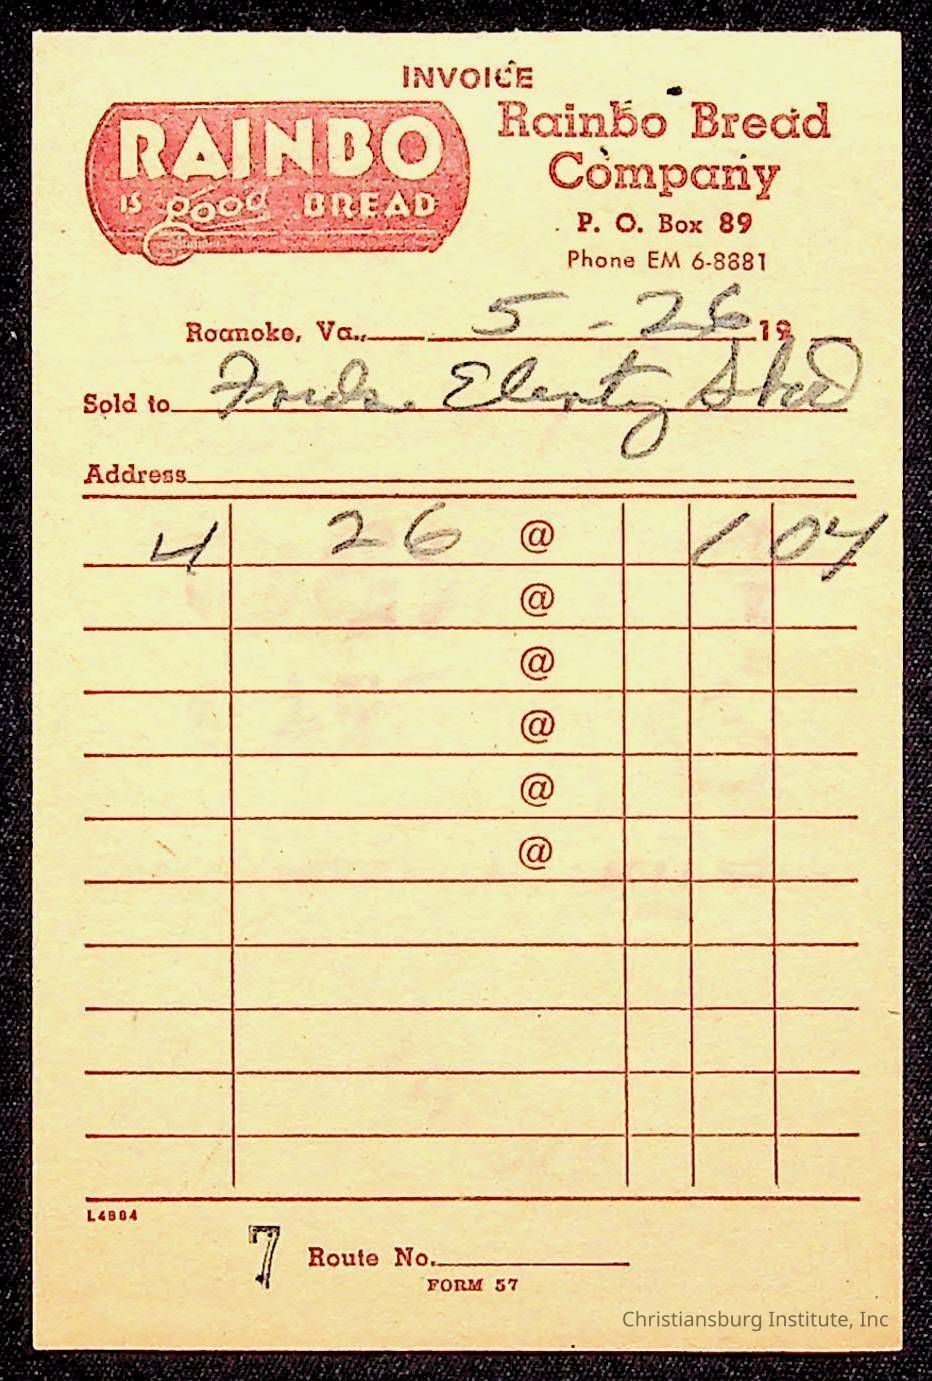 INVOICE
RAINBO
IS good BREAD
Rainbo Bread
Company
P. O. Box 89
Phone EM 6-8881
Roanoke, Va., 5 - 26 19
Sold to
Address
4 26 @ 1 04
@
@
@
@
@
L4884
7 Route No.
FORM 57
Christiansburg Institute, Inc